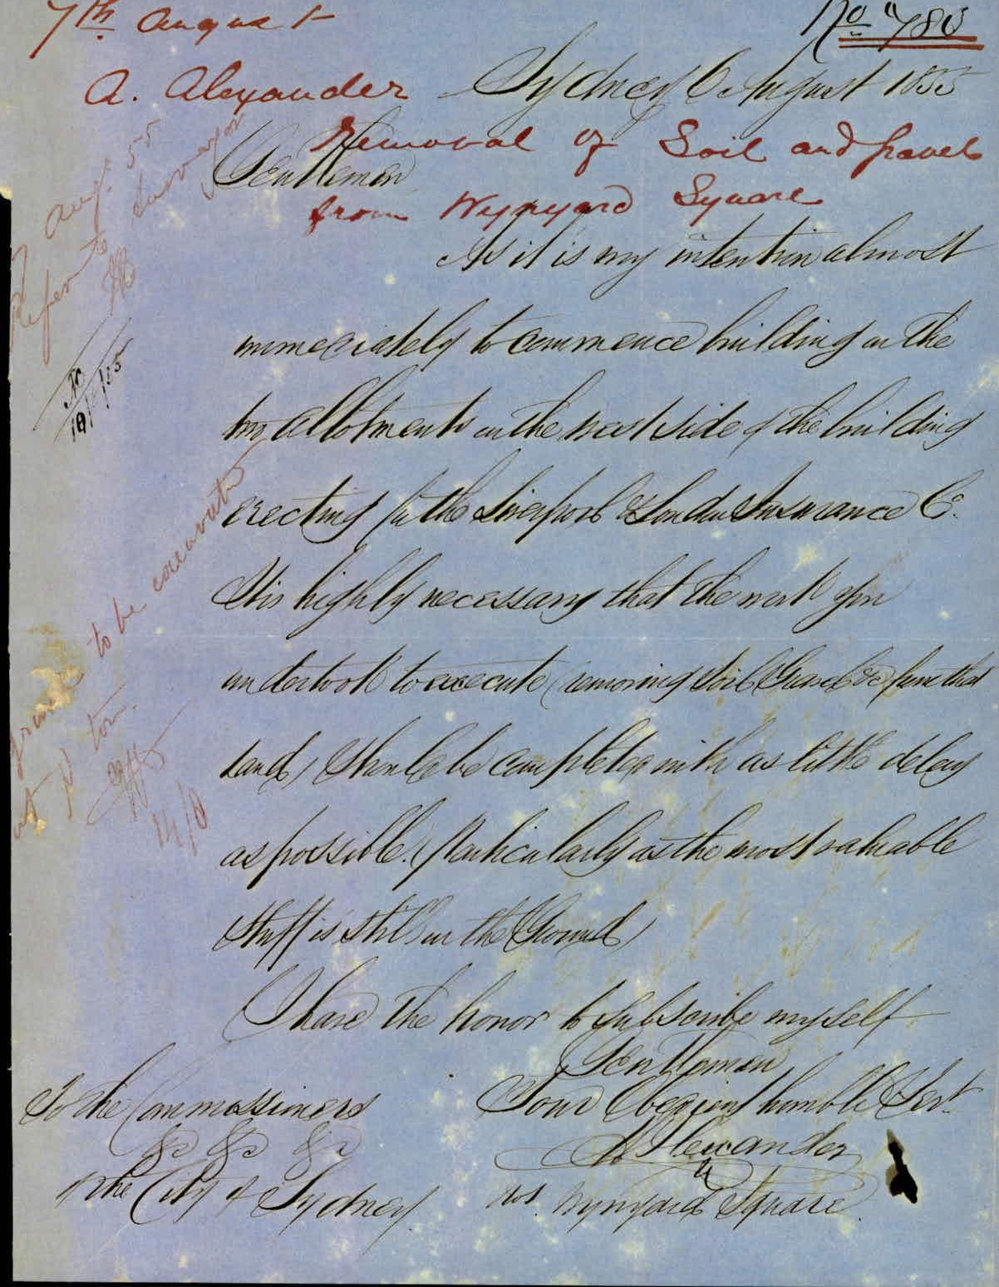 7th August
No 780
A. Alexander
Sydney 6 August 1855
Removal of Soil and Gravel
from Wynyard Square
Gentlemen
As it is my intention almost
immediately to commence building on the
two allotments on the next side of the building
erecting for the Liverpool & London Insurance Co.
It is highly necessary that the work you
undertook to execute (removing Soil Gravel &c from that
land) should be completed with as little delay
as possible. (Particularly as the most valuable
stuff is still in the Ground)
I have the honor to subscribe myself
Gentlemen
Your Obedient humble Servt.
A Alexander
Wynyard Square
To the Commissioners
&c &c &c
of the City of Sydney
Aug. 55
Refer to Surveyor
to be excavated
14/8